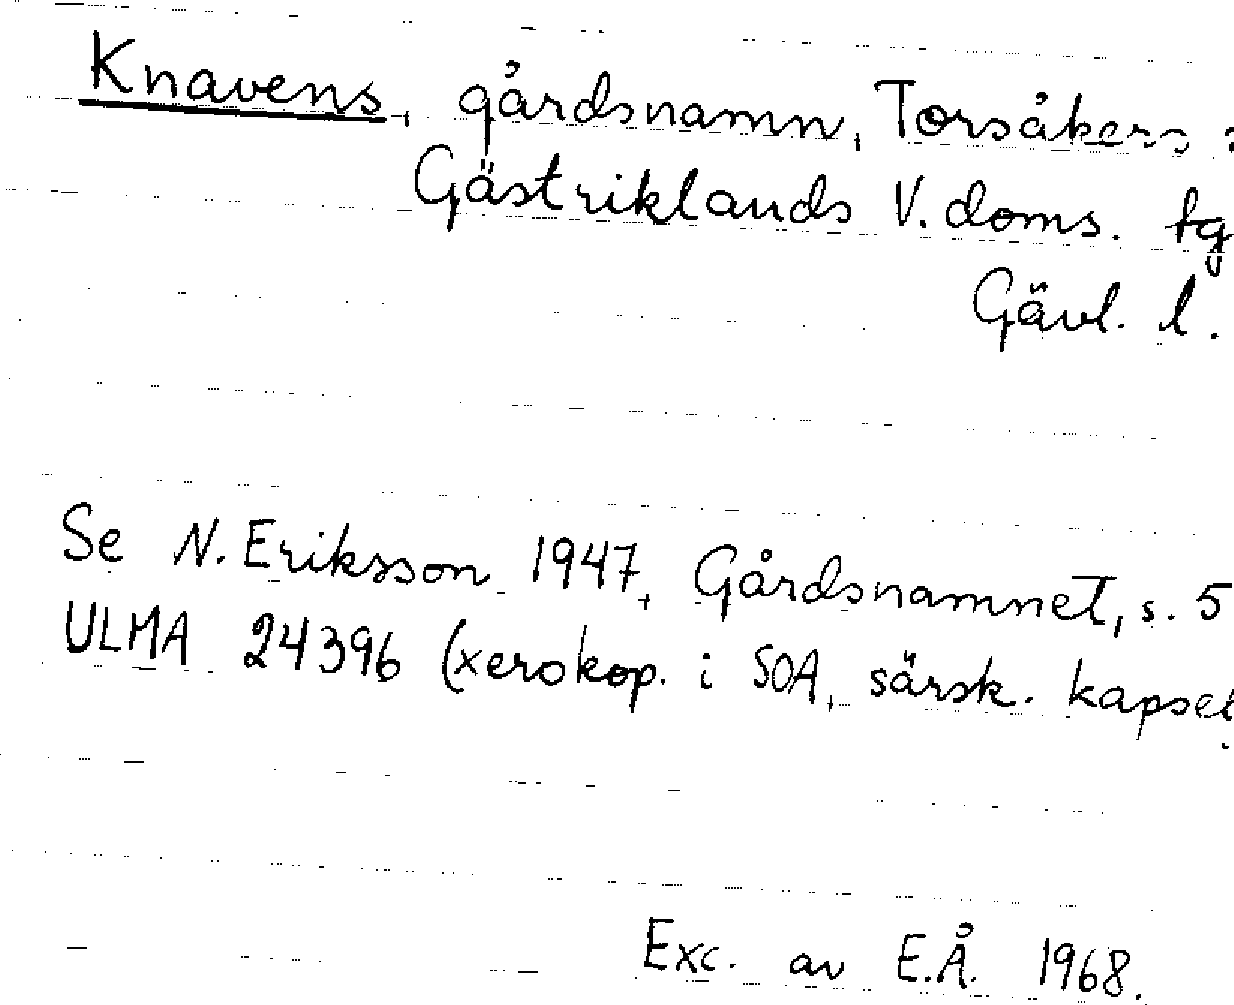 Knavens, gårdsnamn, Torsåkers
Gästriklands V. doms. tg
Gävl. l.
Se N. Eriksson 1947, Gårdsnamnet, s. 5
ULMA 24396 (xerokop. i SOA, särsk. kapsel
Exc. av E.Å. 1968.